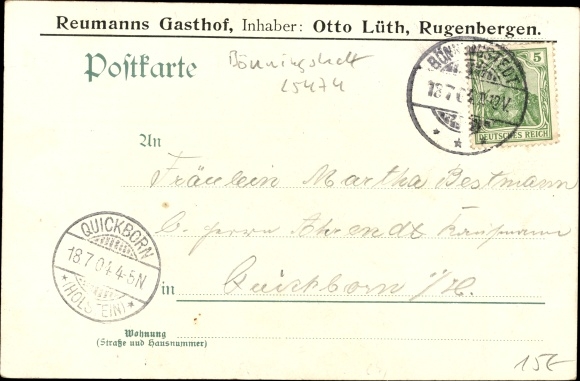 Reumanns Gasthof, Inhaber: Otto Lüth, Rugenbergen.
Postkarte
Bönningstedt
25474
BÖNNINGSTEDT
18.7.04
5
DEUTSCHES REICH
An
Fräulein Martha Bestmann
b. Herrn Ahrendt Kaufmann
in Quickborn i/H.
QUICKBORN
18.7.04. 4-5N
*(HOLSTEIN)*
Wohnung
(Straße und Hausnummer)
15€